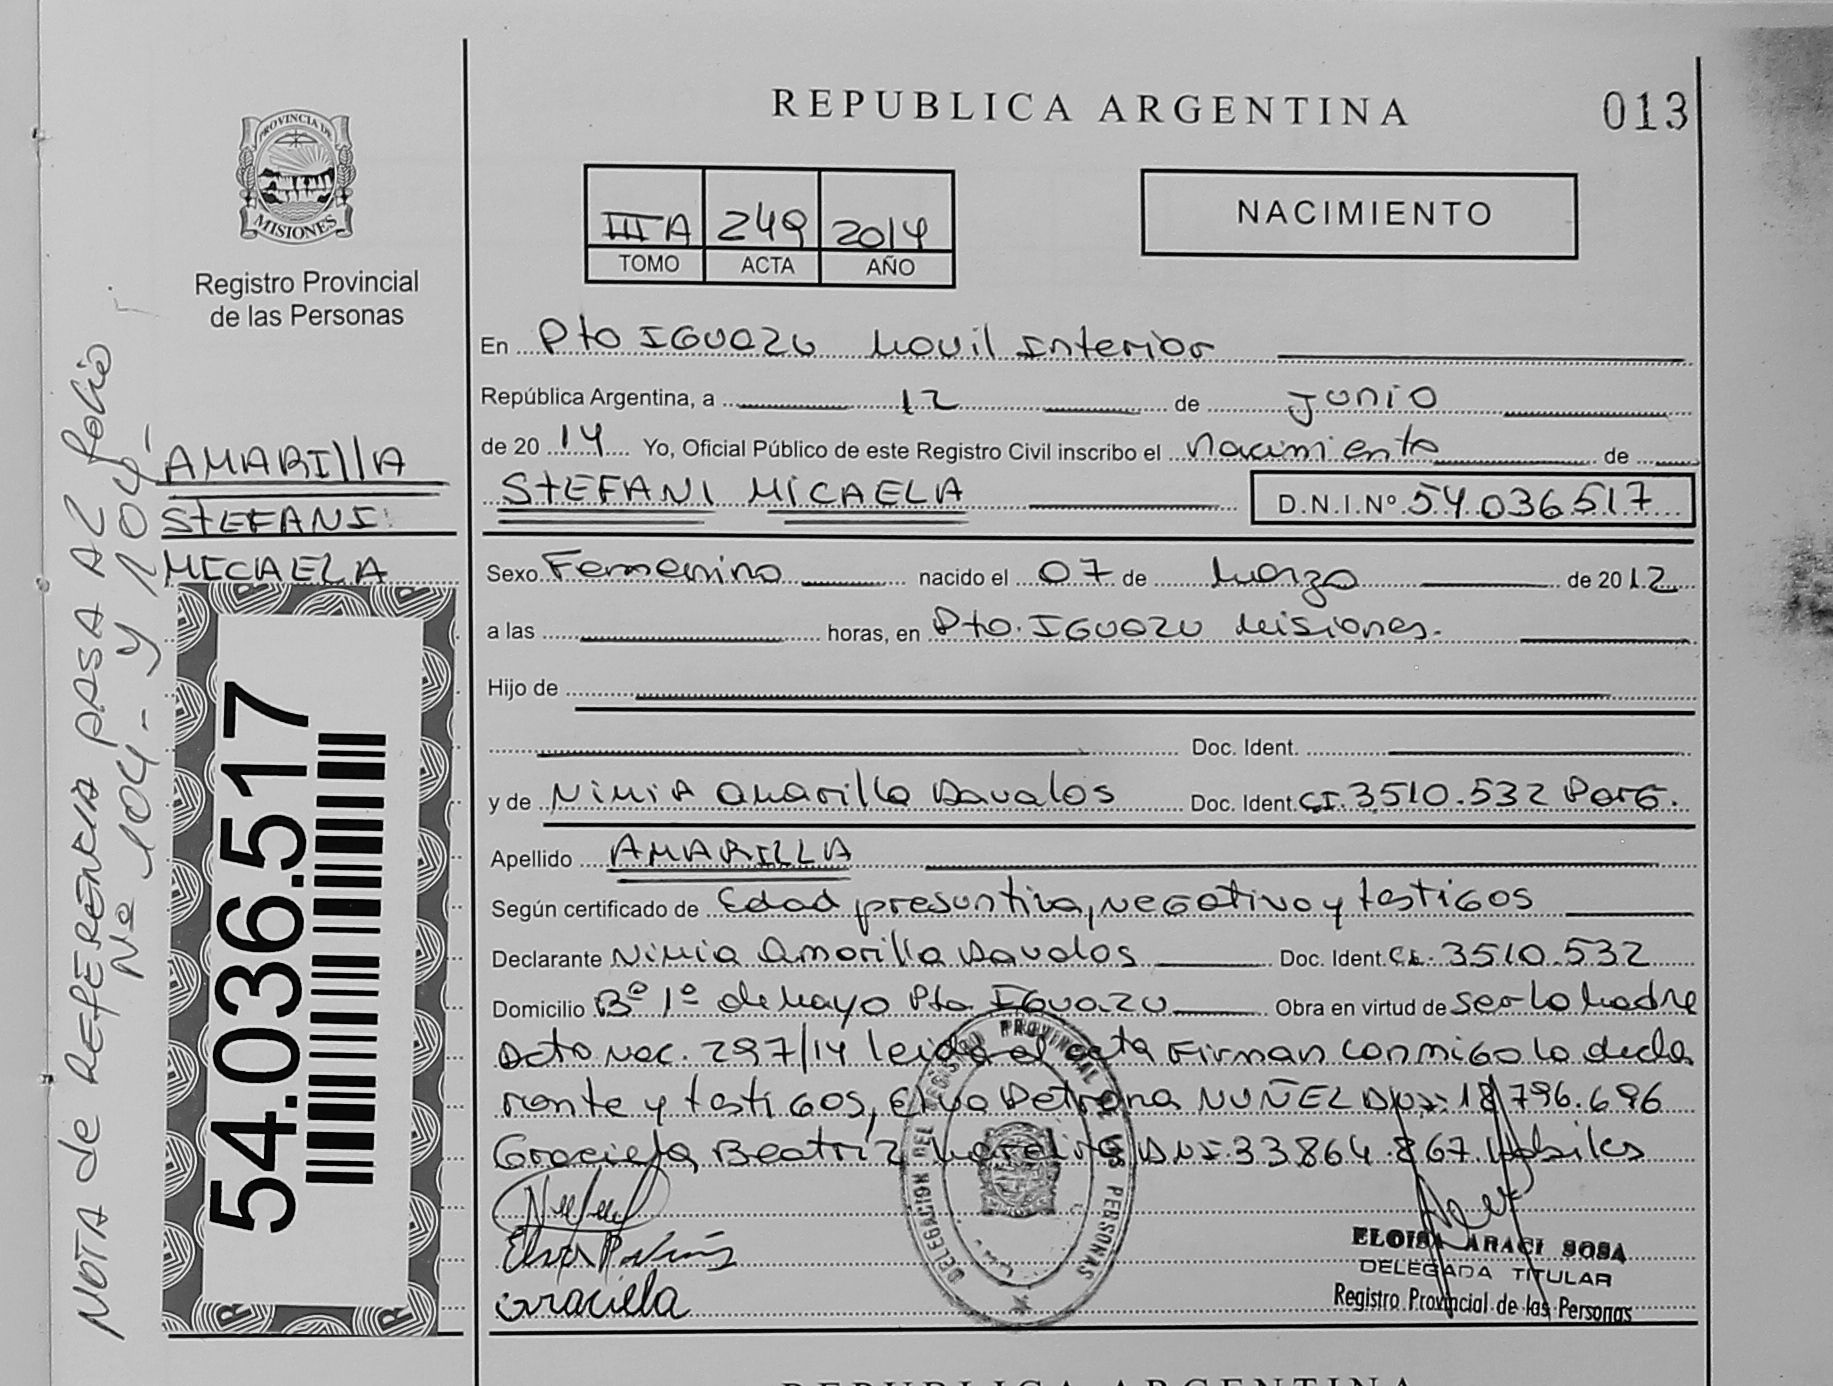 REPUBLICA ARGENTINA
013
PROVINCIA DE
MISIONES
Registro Provincial
de las Personas
IIIA 249 2014
TOMO ACTA AÑO
NACIMIENTO
En Pto IGUAZU Movil Interior
República Argentina, a 12 de junio
de 2014 Yo, Oficial Público de este Registro Civil inscribo el Nacimiento de
STEFANI MICAELA D.N.I.Nº 54036517
AMARIllA
STEFANI
MICAELA
Sexo Femenino nacido el 07 de Marzo de 2012
a las horas, en Pto. IGUAZU Misiones.
Hijo de
Doc. Ident.
y de NIMIA Amarilla Davalos Doc. Ident. CI. 3510.532 Parg.
Apellido AMARILLA
Según certificado de Edad presuntiva, NEGativo y testigos
Declarante Nimia Amarilla Davalos Doc. Ident. CI. 3510.532
Domicilio Bº 1º de Mayo Pto IGuazu Obra en virtud de ser la Madre
Acto Nac. 297/14 leida el acta Firman conmigo la decla
rante y testigos, Elva Petrona NUÑEZ DNI: 18796.696
Graciela Beatriz DNI: 33864.867. Habiles
Graciela
54.036.517
NOTA de REFERENCIA PASA AL folio
Nº 104- y 104-
DELEGACION DEL REGISTRO PROVINCIAL DE LAS PERSONAS
ELOISA ARACI SOSA
DELEGADA TITULAR
Registro Provincial de las Personas
REPUBLICA ARGENTINA